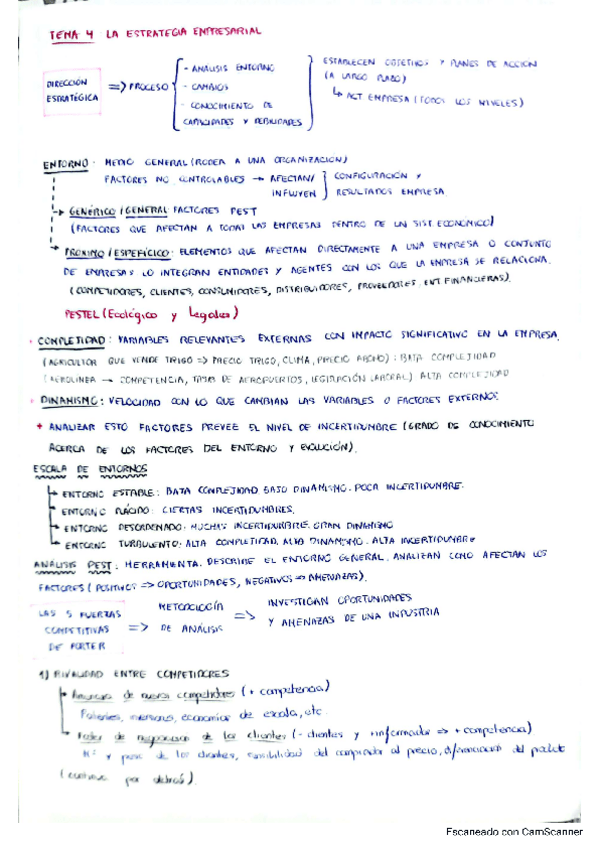 TEMA 4 LA ESTRATEGIA EMPRESARIAL
DIRECCIÓN ESTRATÉGICA => PROCESO
- ANÁLISIS ENTORNO
- CAMBIOS
- CONOCIMIENTO DE CAPACIDADES Y DEBILIDADES
ESTABLECEN OBJETIVOS Y PLANES DE ACCIÓN
(A LARGO PLAZO)
↳ ACT EMPRESA (TODOS LOS NIVELES)
ENTORNO: MEDIO GENERAL (RODEA A UNA ORGANIZACIÓN)
FACTORES NO CONTROLABLES → AFECTAN/ INFLUYEN } CONFIGURACIÓN Y RESULTADOS EMPRESA
GENÉRICO/GENERAL FACTORES PEST
(FACTORES QUE AFECTAN A TODAS LAS EMPRESAS DENTRO DE UN SIST ECONÓMICO)
PRÓXIMO/ESPEFÍCICO: ELEMENTOS QUE AFECTAN DIRECTAMENTE A UNA EMPRESA O CONJUNTO
DE EMPRESAS LO INTEGRAN ENTIDADES Y AGENTES CON LOS QUE LA EMPRESA SE RELACIONA.
(COMPETIDORES, CLIENTES, CONSUMIDORES, DISTRIBUIDORES, PROVEEDORES. ENT FINANCIERAS).
PESTEL (Ecológico y Legales)
· COMPLETIDAD: VARIABLES RELEVANTES EXTERNAS CON IMPACTO SIGNIFICATIVO EN LA EMPRESA.
(AGRICULTOR QUE VENDE TRIGO => PRECIO TRIGO, CLIMA, PRECIO ABONO): BAJA COMPLEJIDAD
(AEROLINEA → COMPETENCIA, TASAS DE AEROPUERTOS, LEGISLACIÓN LABORAL) ALTA COMPLEJIDAD
· DINAMISMO: VELOCIDAD CON LO QUE CAMBIAN LAS VARIABLES O FACTORES EXTERNOS.
* ANALIZAR ESTO FACTORES PREVEE EL NIVEL DE INCERTIDUMBRE (GRADO DE CONOCIMIENTO
ACERCA DE LOS FACTORES DEL ENTORNO Y EVOLUCIÓN).
ESCALA DE ENTORNOS
ENTORNO ESTABLE: BAJA COMPLEJIDAD BAJO DINAMISMO. POCA INCERTIDUMBRE.
ENTORNO PLÁCIDO: CIERTAS INCERTIDUMBRES.
ENTORNO DESORDENADO: MUCHAS INCERTIDUMBRE. GRAN DINAMISMO
ENTORNO TURBULENTO: ALTA COMPLETIDAD, ALTO DINAMISMO. ALTA INCERTIDUMBRE
ANÁLISIS PEST: HERRAMIENTA. DESCRIBE EL ENTORNO GENERAL. ANALIZAN COMO AFECTAN LOS
FACTORES (POSITIVOS => OPORTUNIDADES, NEGATIVOS => AMENAZAS).
LAS 5 FUERZAS COMPETITIVAS DE PORTER => METODOLOGÍA DE ANÁLISIS => INVESTIGAN OPORTUNIDADES Y AMENAZAS DE UNA INDUSTRIA
1) RIVALIDAD ENTRE COMPETIDORES
Amenaza de nuevos competidores (+ competencia)
Patentes, economías de escala, etc
Poder de negociación de los clientes (- clientes y +informados => + competencia)
Nº y peso de los clientes, sensibilidad del comprador al precio, diferenciación del producto
(continua por detrás).
Escaneado con CamScanner